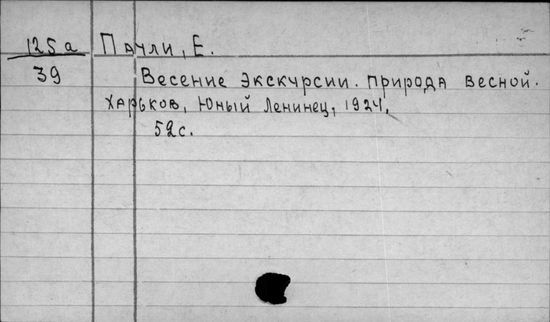 125а Паули, Е.
39 Весение экскурсии. Природа весной.
Харьков, Юный Ленинец, 1924,
52с.